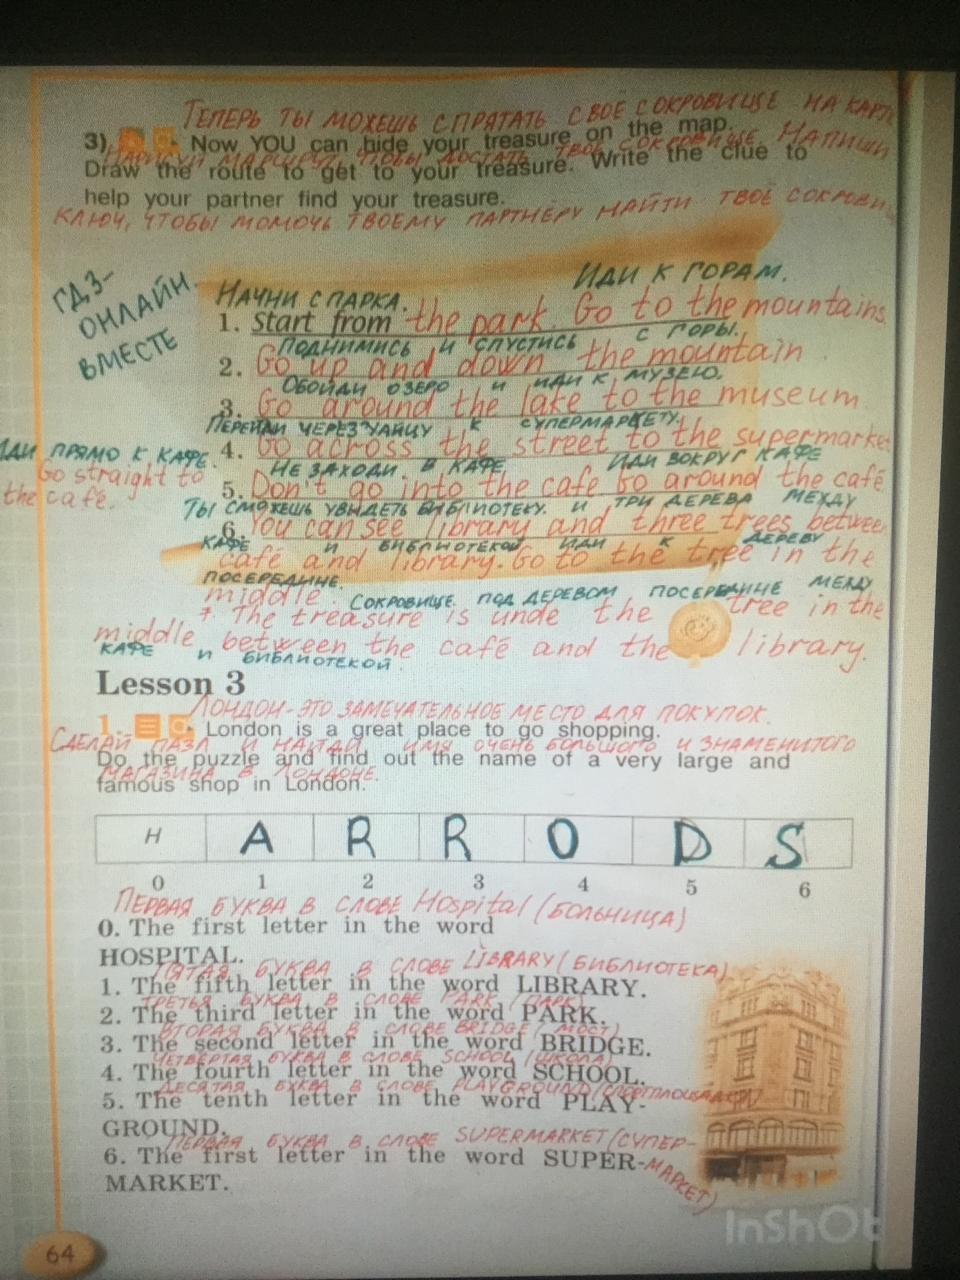 ТЕПЕРЬ ТЫ МОЖЕШЬ СПРЯТАТЬ СВОЕ СОКРОВИЩЕ НА КАРТ
3) Now YOU can hide your treasure on the map.
НАРИСУЙ МАРШРУТ, ЧТОБЫ ДОСТАТЬ ТВОЕ СОКРОВИЩЕ. НАПИШИ
Draw the route to get to your treasure. Write the clue to
help your partner find your treasure.
КЛЮЧ, ЧТОБЫ МОМОЧЬ ТВОЕМУ ПАРТНЁРУ НАЙТИ ТВОЁ СОКРОВИ
ГДЗ-
ОНЛАЙН
ВМЕСТЕ
НАЧНИ С ПАРКА. ИДИ К ГОРАМ.
1. Start from the park. Go to the mountains.
ПОДНИМИСЬ И СПУСТИСЬ С ГОРЫ.
2. Go up and down the mountain
ОБОЙДИ ОЗЕРО И ИДИ К МУЗЕЮ.
3. Go around the lake to the museum
ПЕРЕЙДИ ЧЕРЕЗ УЛИЦУ К СУПЕРМАРКЕТУ.
4. Go across the street to the supermarket
ИДИ ПРЯМО К КАФЕ.
Go straight to
the café.
НЕ ЗАХОДИ В КАФЕ ИДИ ВОКРУГ КАФЕ
5. Don't go into the cafe Go around the café
ТЫ СМОЖЕШЬ УВИДЕТЬ БИБЛИОТЕКУ. И ТРИ ДЕРЕВА МЕЖДУ
6. You can see library and three trees betwee
КАФЕ И БИБЛИОТЕКОЙ ИДИ К ДЕРЕВУ
café and library. Go to the tree in the
ПОСЕРЕДИНЕ.
middle.
СОКРОВИЩЕ ПОД ДЕРЕВОМ ПОСЕРЕДИНЕ МЕЖДУ
7. The treasure is unde the tree in the
middle between the café and the library.
КАФЕ И БИБЛИОТЕКОЙ.
Lesson 3
ЛОНДОН-ЭТО ЗАМЕЧАТЕЛЬНОЕ МЕСТО ДЛЯ ПОКУПОК.
1. London is a great place to go shopping.
СДЕЛАЙ ПАЗЛ И НАЙДИ ИМЯ ОЧЕНЬ БОЛЬШОГО И ЗНАМЕНИТОГО
Do the puzzle and find out the name of a very large and
МАГАЗИНА В ЛОНДОНЕ.
famous shop in London.
H A R R O D S
0 1 2 3 4 5 6
ПЕРВАЯ БУКВА В СЛОВЕ Hospital (БОЛЬНИЦА)
0. The first letter in the word
HOSPITAL.
ПЯТАЯ БУКВА В СЛОВЕ LIBRARY (БИБЛИОТЕКА)
1. The fifth letter in the word LIBRARY.
ТРЕТЬЯ БУКВА В СЛОВЕ PARK (ПАРК)
2. The third letter in the word PARK.
ВТОРАЯ БУКВА В СЛОВЕ BRIDGE (МОСТ)
3. The second letter in the word BRIDGE.
ЧЕТВЁРТАЯ БУКВА В СЛОВЕ SCHOOL (ШКОЛА)
4. The fourth letter in the word SCHOOL.
ДЕСЯТАЯ БУКВА В СЛОВЕ PLAYGROUND (СПОРТПЛОЩАДКА)
5. The tenth letter in the word PLAY-
GROUND.
ПЕРВАЯ БУКВА В СЛОВЕ SUPERMARKET (СУПЕР-
МАРКЕТ)
6. The first letter in the word SUPER-
MARKET.
InShOt
64